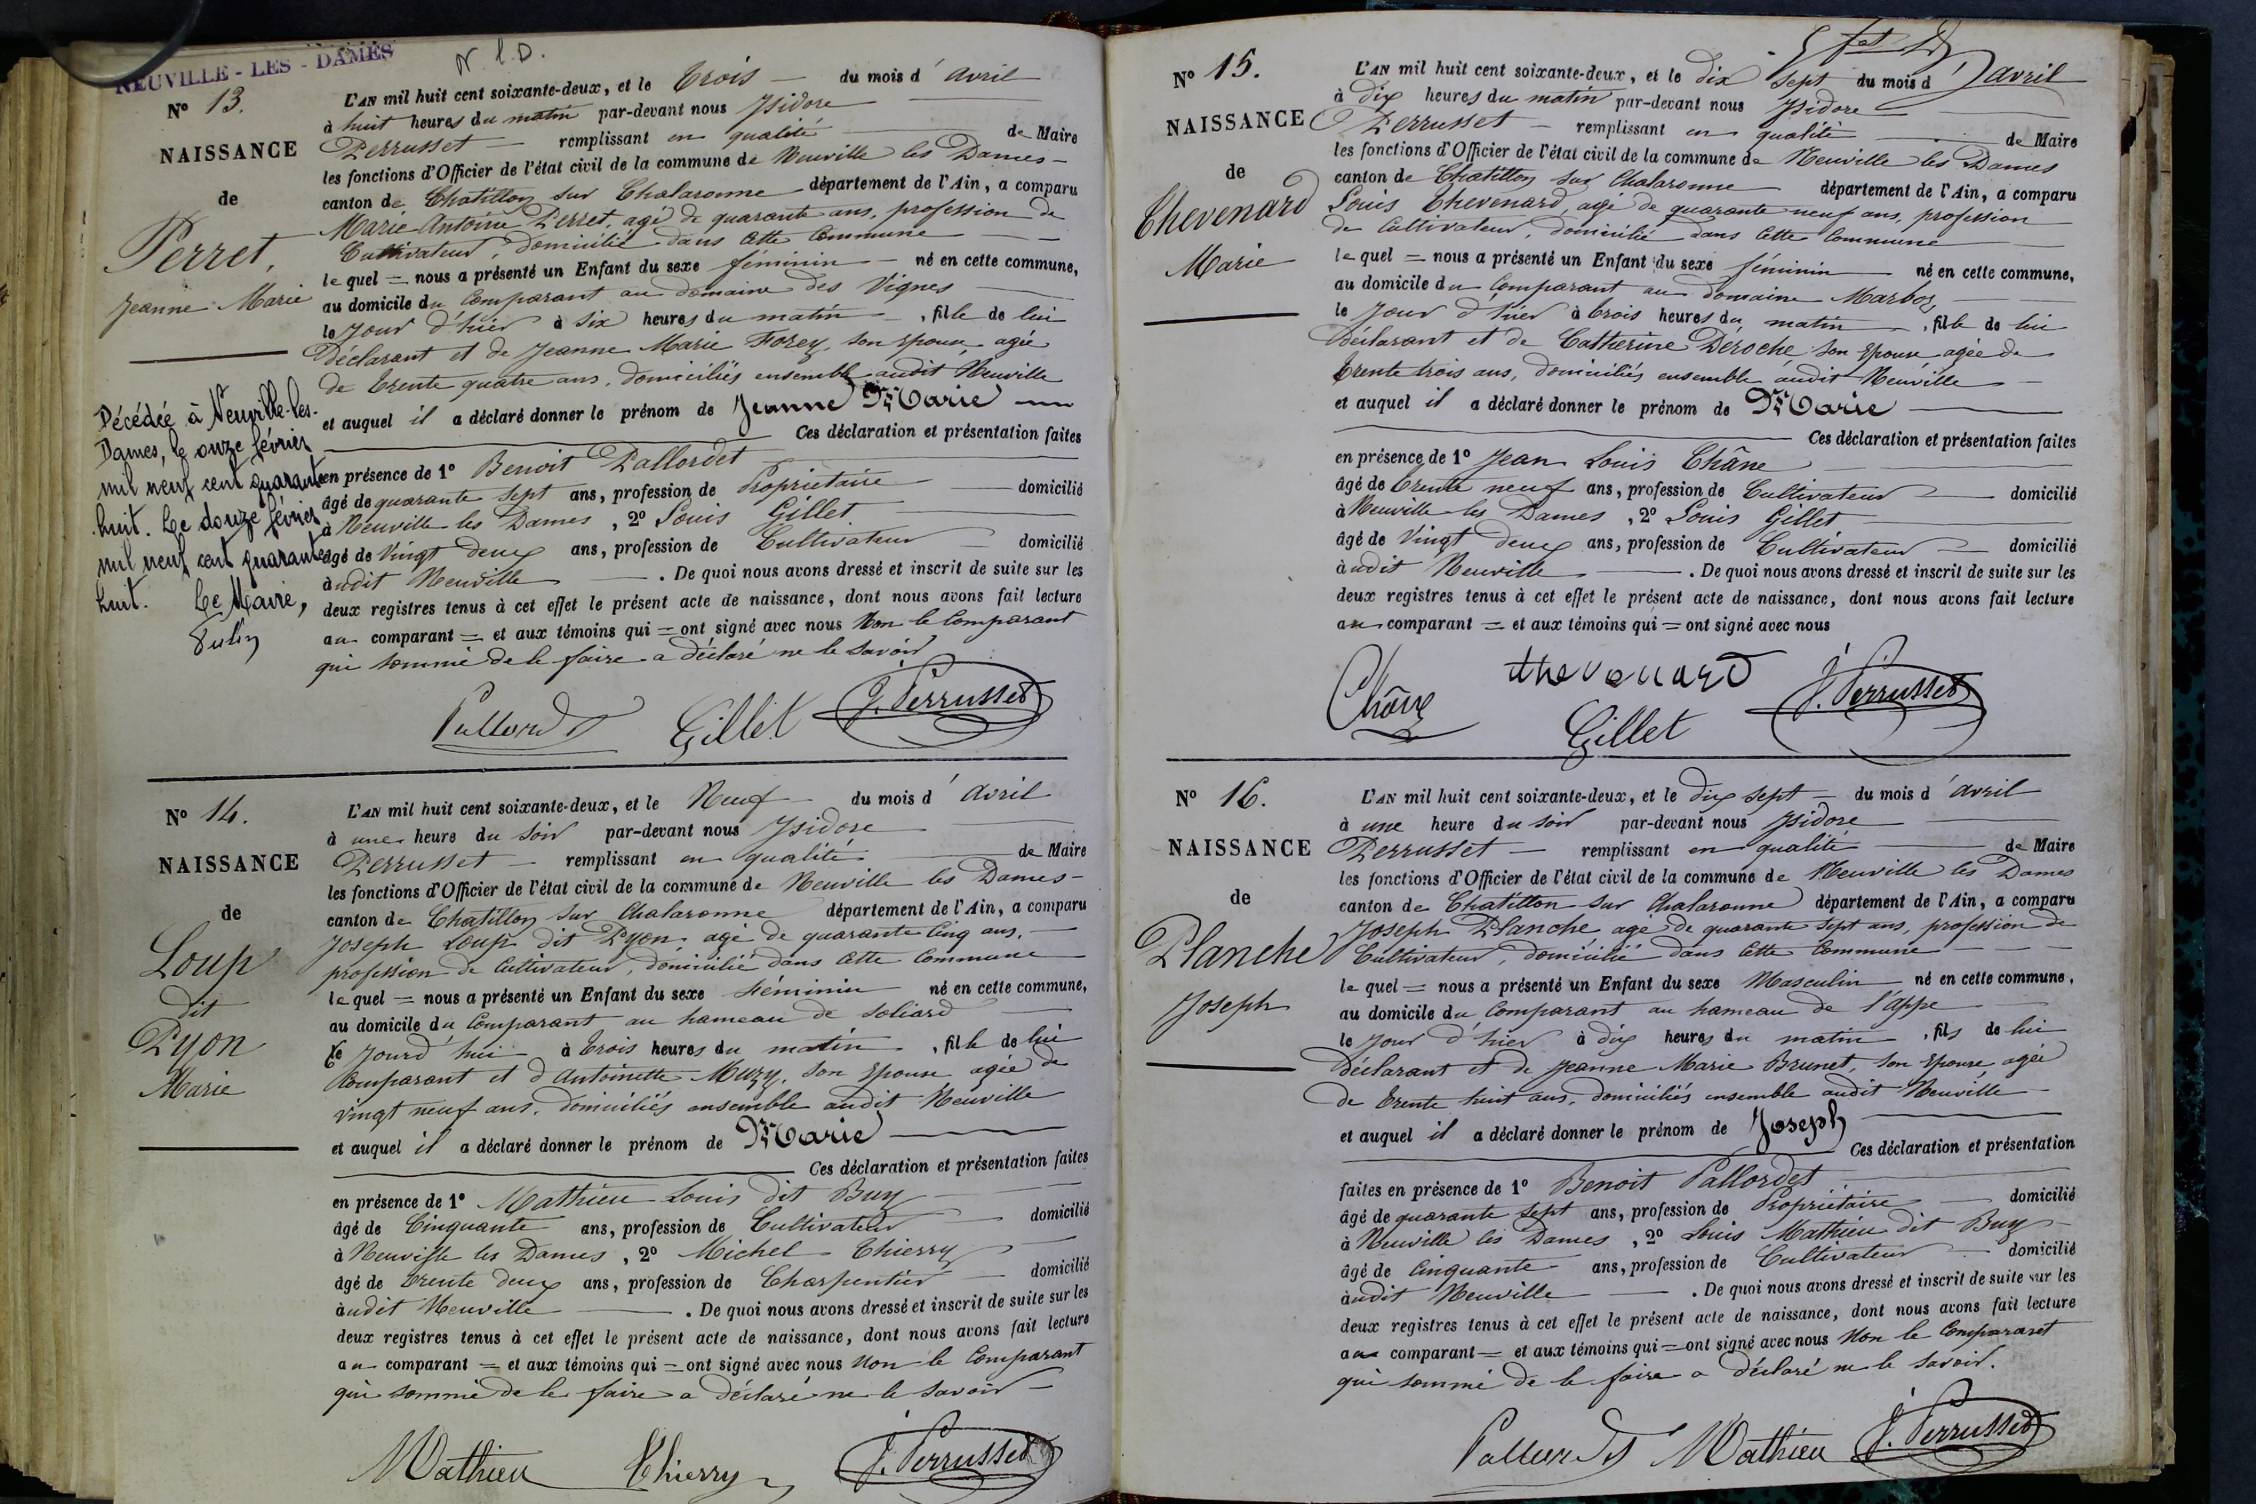 NEUVILLE - LES - DAMES
N. l. D.
N° 13.
NAISSANCE
de
Perret,
Jeanne Marie
Décédée à Neuville-les-
Dames, le onze février
mil neuf cent quarante
huit. Le douze février
mil neuf cent quarante
huit. Le Maire,
L'AN mil huit cent soixante-deux, et le trois du mois d'avril
à huit heures du matin par-devant nous Isidore
Perrusset remplissant en qualité de Maire
les fonctions d'Officier de l'état civil de la commune de Neuville les Dames
canton de Chatillon sur Chalaronne département de l'Ain, a comparu
Marie-Antoine Perret, agé de quarante ans, profession de
Cultivateur, domicilié dans cette Commune
lequel = nous a présenté un Enfant du sexe féminin né en cette commune,
au domicile du Comparant au domaine des Vignes
le jour d'hier à six heures du matin, fille de lui
Déclarant et de Jeanne Marie Forey, son épouse agée
de trente quatre ans, domiciliés ensemble audit Neuville
et auquel il a déclaré donner le prénom de Jeanne Marie
Ces déclaration et présentation faites
en présence de 1° Benoit Pallordet
âgé de quarante sept ans, profession de Propriétaire domicilié
à Neuville les Dames, 2° Louis Gillet
âgé de Vingt deux ans, profession de Cultivateur domicilié
audit Neuville. De quoi nous avons dressé et inscrit de suite sur les
deux registres tenus à cet effet le présent acte de naissance, dont nous avons fait lecture
au comparant = et aux témoins qui = ont signé avec nous Non le Comparant
qui sommé de le faire a déclaré ne le savoir
Pallordet Gillet J. Perrusset
N° 14.
NAISSANCE
de
Loup
dit
Pyon
Marie
L'AN mil huit cent soixante-deux, et le Neuf du mois d'avril
à une heure du soir par-devant nous Isidore
Perrusset remplissant en qualité de Maire
les fonctions d'Officier de l'état civil de la commune de Neuville les Dames
canton de Chatillon sur Chalaronne département de l'Ain, a comparu
Joseph Loup dit Pyon, agé de quarante cinq ans,
profession de Cultivateur, domicilié dans cette Commune
lequel = nous a présenté un Enfant du sexe féminin né en cette commune,
au domicile du Comparant au hameau de Soliard
le jourd'hui à trois heures du matin, fille de lui
Comparant et d'Antoinette Muzy, son épouse agée de
vingt neuf ans, domiciliés ensemble audit Neuville
et auquel il a déclaré donner le prénom de Marie
Ces déclaration et présentation faites
en présence de 1° Mathieu Louis dit Buy
âgé de Cinquante ans, profession de Cultivateur domicilié
à Neuville les Dames, 2° Michel Thierry
âgé de trente deux ans, profession de Charpentier domicilié
audit Neuville. De quoi nous avons dressé et inscrit de suite sur les
deux registres tenus à cet effet le présent acte de naissance, dont nous avons fait lecture
au comparant = et aux témoins qui = ont signé avec nous Non le Comparant
qui sommé de le faire a déclaré ne le savoir
Mathieu Thierry J. Perrusset
N° 15.
NAISSANCE
de
Chevenard
Marie
L'AN mil huit cent soixante-deux, et le dix sept du mois d'avril
à dix heures du matin par-devant nous Isidore
Perrusset remplissant en qualité de Maire
les fonctions d'Officier de l'état civil de la commune de Neuville les Dames
canton de Chatillon sur Chalaronne département de l'Ain, a comparu
Louis Chevenard, agé de quarante neuf ans, profession
de Cultivateur, domicilié dans cette Commune
lequel = nous a présenté un Enfant du sexe féminin né en cette commune,
au domicile du Comparant au domaine Marboz
le jour d'hier à trois heures du matin, fille de lui
Déclarant et de Catherine Déroche son épouse agée de
trente trois ans, domiciliés ensemble audit Neuville
et auquel il a déclaré donner le prénom de Marie
Ces déclaration et présentation faites
en présence de 1° Jean Louis Châne
âgé de trente neuf ans, profession de Cultivateur domicilié
à Neuville les Dames, 2° Louis Gillet
âgé de Vingt deux ans, profession de Cultivateur domicilié
audit Neuville. De quoi nous avons dressé et inscrit de suite sur les
deux registres tenus à cet effet le présent acte de naissance, dont nous avons fait lecture
au comparant = et aux témoins qui = ont signé avec nous
Châne chevenard Gillet J. Perrusset
N° 16.
NAISSANCE
de
Planche
Joseph
L'AN mil huit cent soixante-deux, et le dix sept du mois d'avril
à une heure du soir par-devant nous Isidore
Perrusset remplissant en qualité de Maire
les fonctions d'Officier de l'état civil de la commune de Neuville les Dames
canton de Chatillon sur Chalaronne département de l'Ain, a comparu
Joseph Planche agé de quarante sept ans, profession de
Cultivateur, domicilié dans cette Commune
lequel = nous a présenté un Enfant du sexe Masculin né en cette commune,
au domicile du Comparant au hameau de l'appe
le jour d'hier à dix heures du matin, fils de lui
Déclarant et de Jeanne Marie Brunet, son épouse agée
de trente huit ans, domiciliés ensemble audit Neuville
et auquel il a déclaré donner le prénom de Joseph
Ces déclaration et présentation
faites en présence de 1° Benoit Pallordet
âgé de quarante sept ans, profession de Propriétaire domicilié
à Neuville les Dames, 2° Louis Mathieu dit Buy
âgé de Cinquante ans, profession de Cultivateur domicilié
audit Neuville. De quoi nous avons dressé et inscrit de suite sur les
deux registres tenus à cet effet le présent acte de naissance, dont nous avons fait lecture
au comparant = et aux témoins qui = ont signé avec nous Non le Comparant
qui sommé de le faire a déclaré ne le savoir.
Pallordet Mathieu J. Perrusset